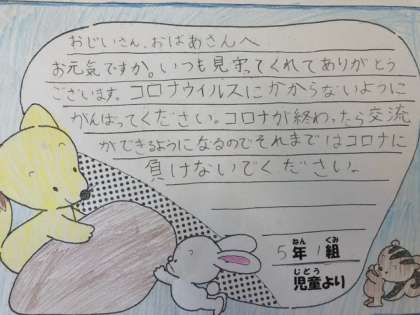 おじいさん、おばあさんへ
お元気ですか。いつも見守ってくれてありがとう
ございます。コロナウイルスにかからないように
がんばってください。コロナが終わったら交流
ができるようになるのでそれまではコロナに
負けないでください。
5年1組
ねん くみ
児童より
じどう